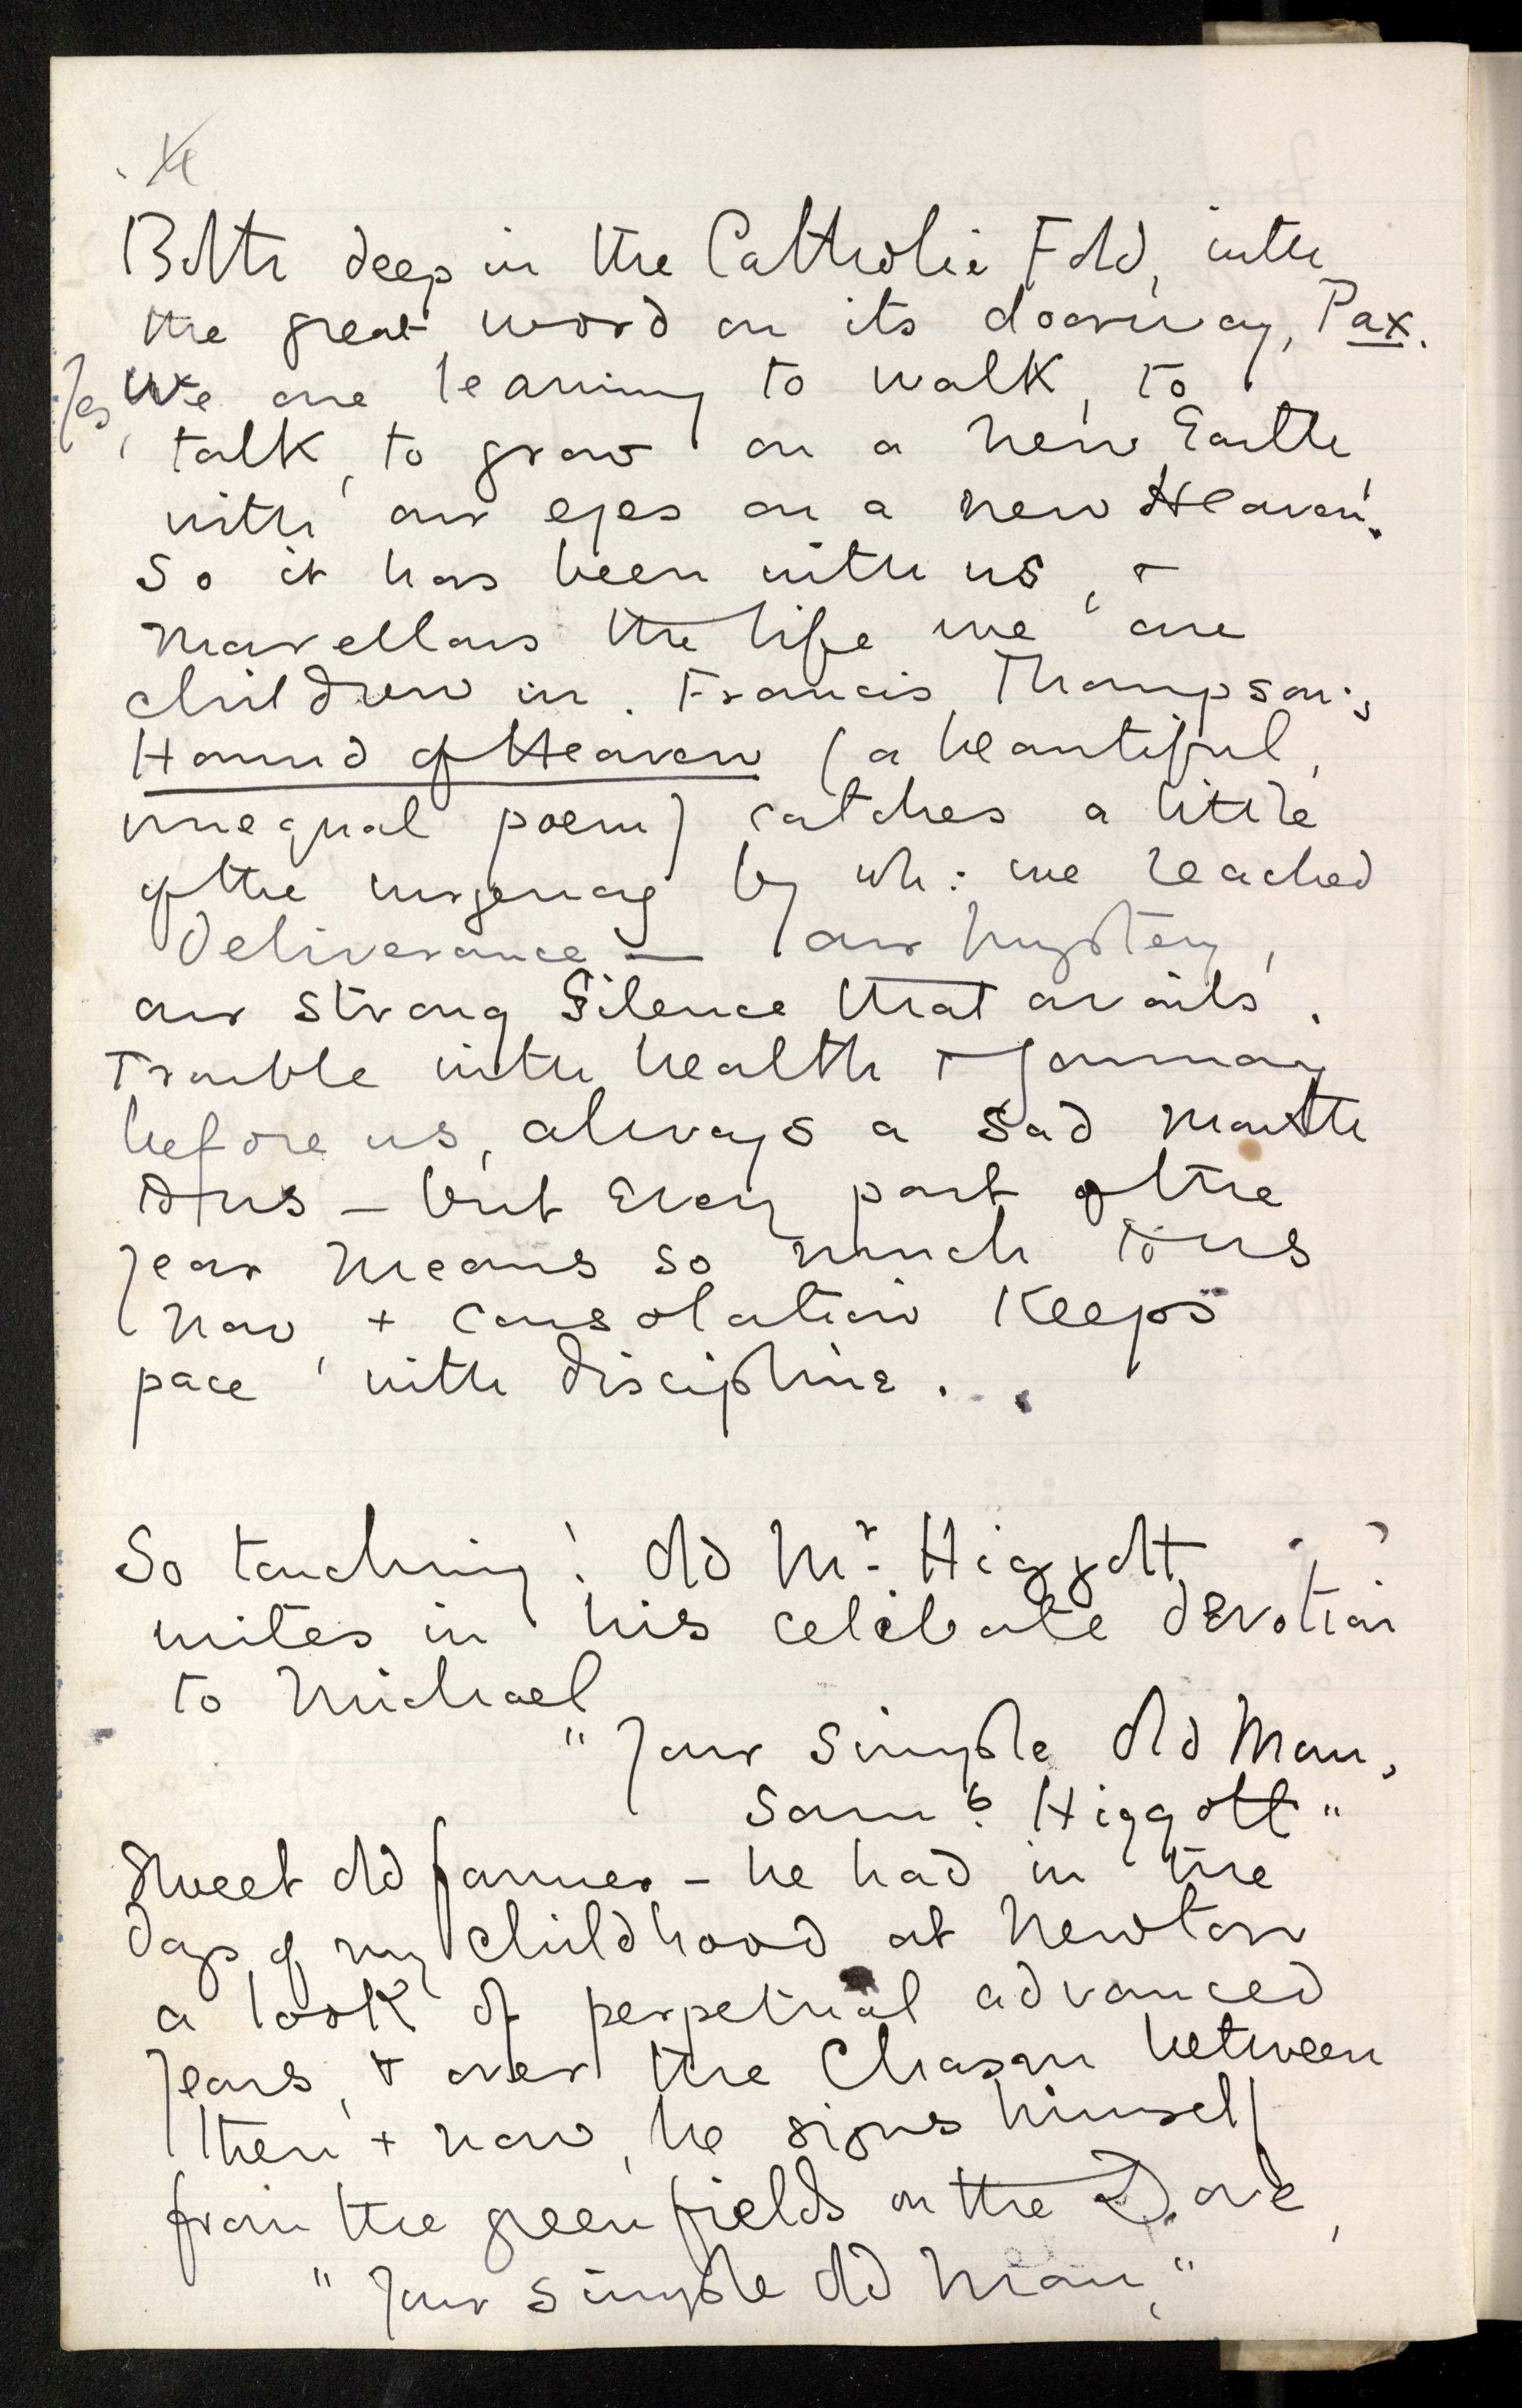 Both deep in the Catholic Fold, with
the great word on its doorway, Pax.
Yes, We are learning to walk, to
talk, to grow on a new Earth,
with our eyes on a new Heaven!
So it has been with us, +
marvellous the life we are
children in. Francis Thompson's
Hound of Heaven (a beautiful,
unequal poem) catches a little
of the urgency by wh: we reached
Deliverance — our mystery,
our strong Silence that avails.
Trouble with health + January
before us, always a sad month
to us — but every part of the
year means so much to us
now, + consolation keeps
pace with discipline...
So touching! Old Mr. Higgott
writes in his celibate devotion
to Michael
"Your simple Old Man,
Saml. Higgott"
Sweet old farmer - he had in the
days of my childhood at Newton
a look of perpetual advanced
years, + over the Chasm between
then + now, he signs himself
from the green fields on the Dove,
"Your simple Old Man,"